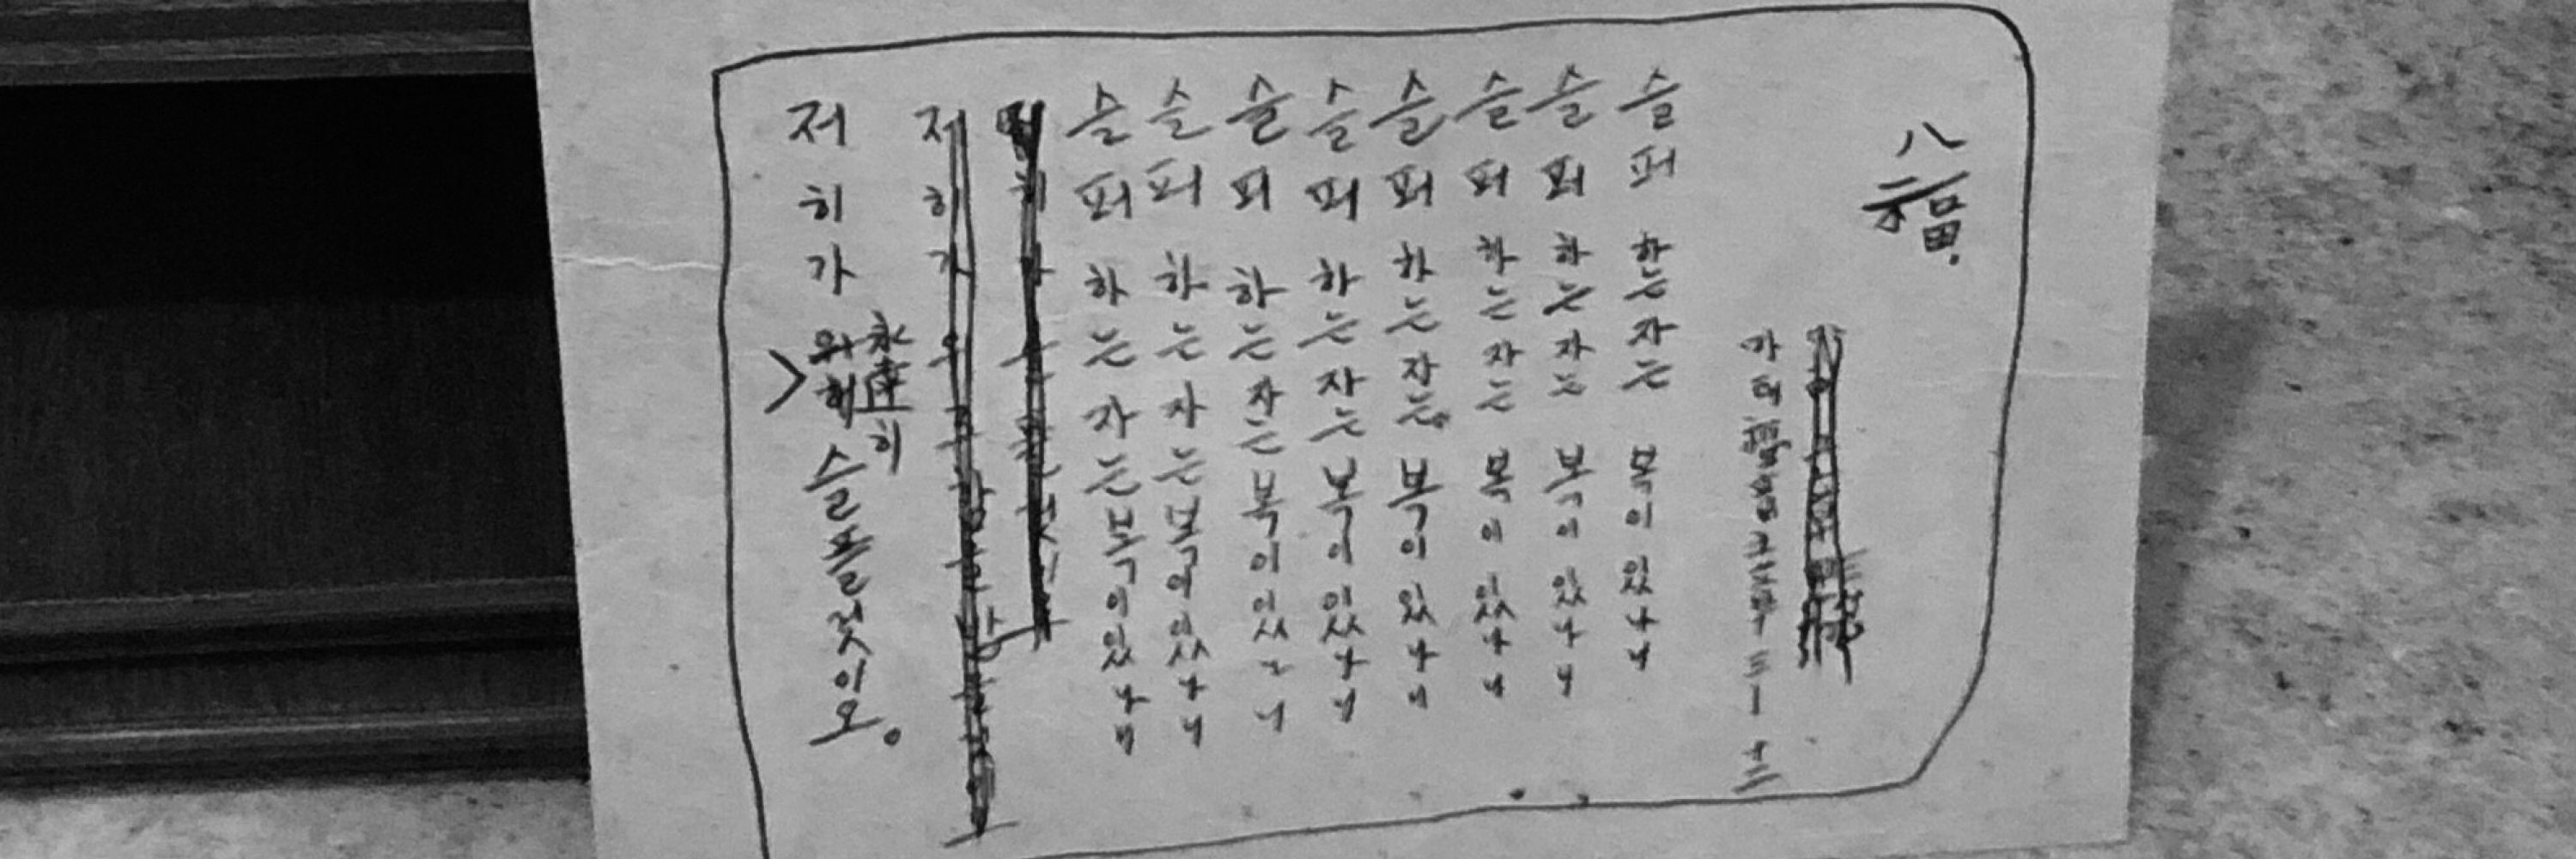 八福
마태福音五章 三ー十二
슬퍼 하는자는 복이있나니
슬퍼 하는자는 복이있나니
슬퍼 하는자는 복이있나니
슬퍼 하는자는 복이있나니
슬퍼 하는자는 복이있나니
슬퍼 하는자는 복이있나니
슬퍼 하는자는 복이있나니
슬퍼 하는자는 복이있나니
저히가 永遠히 슬플것이오。